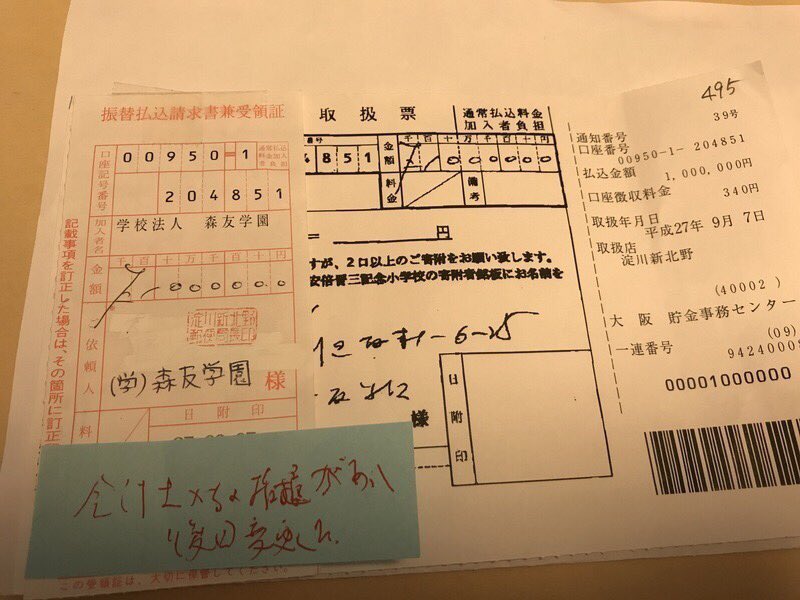 振替払込請求書兼受領証
口座記号番号
00950-1
通常払込料金加入者負担
204851
加入者名
学校法人 森友学園
金額
千百十万千百十円
1000000
淀川新北野
郵便局長印
ご依頼人
(学)森友学園 様
日附印
料
記載事項を訂正した場合は、その箇所に訂正
この受領証は、大切に保管してください。
会計士
指摘があり
後日変更した
取扱票
通常払込料金
加入者負担
4851
金額
千百十万千百十円
1000000
料金
備考
= 円
すが、2口以上のご寄附をお願い致します。
安倍晋三記念小学校の寄附者銘板にお名前を
-6-
様
日附印
495
39号
通知番号
口座番号
00950-1- 204851
払込金額
1,000,000円
口座徴収料金
340円
取扱年月日
平成27年 9月 7日
取扱店
淀川新北野
(40002)
大阪 貯金事務センター
(09)
一連番号
9424000
00001000000